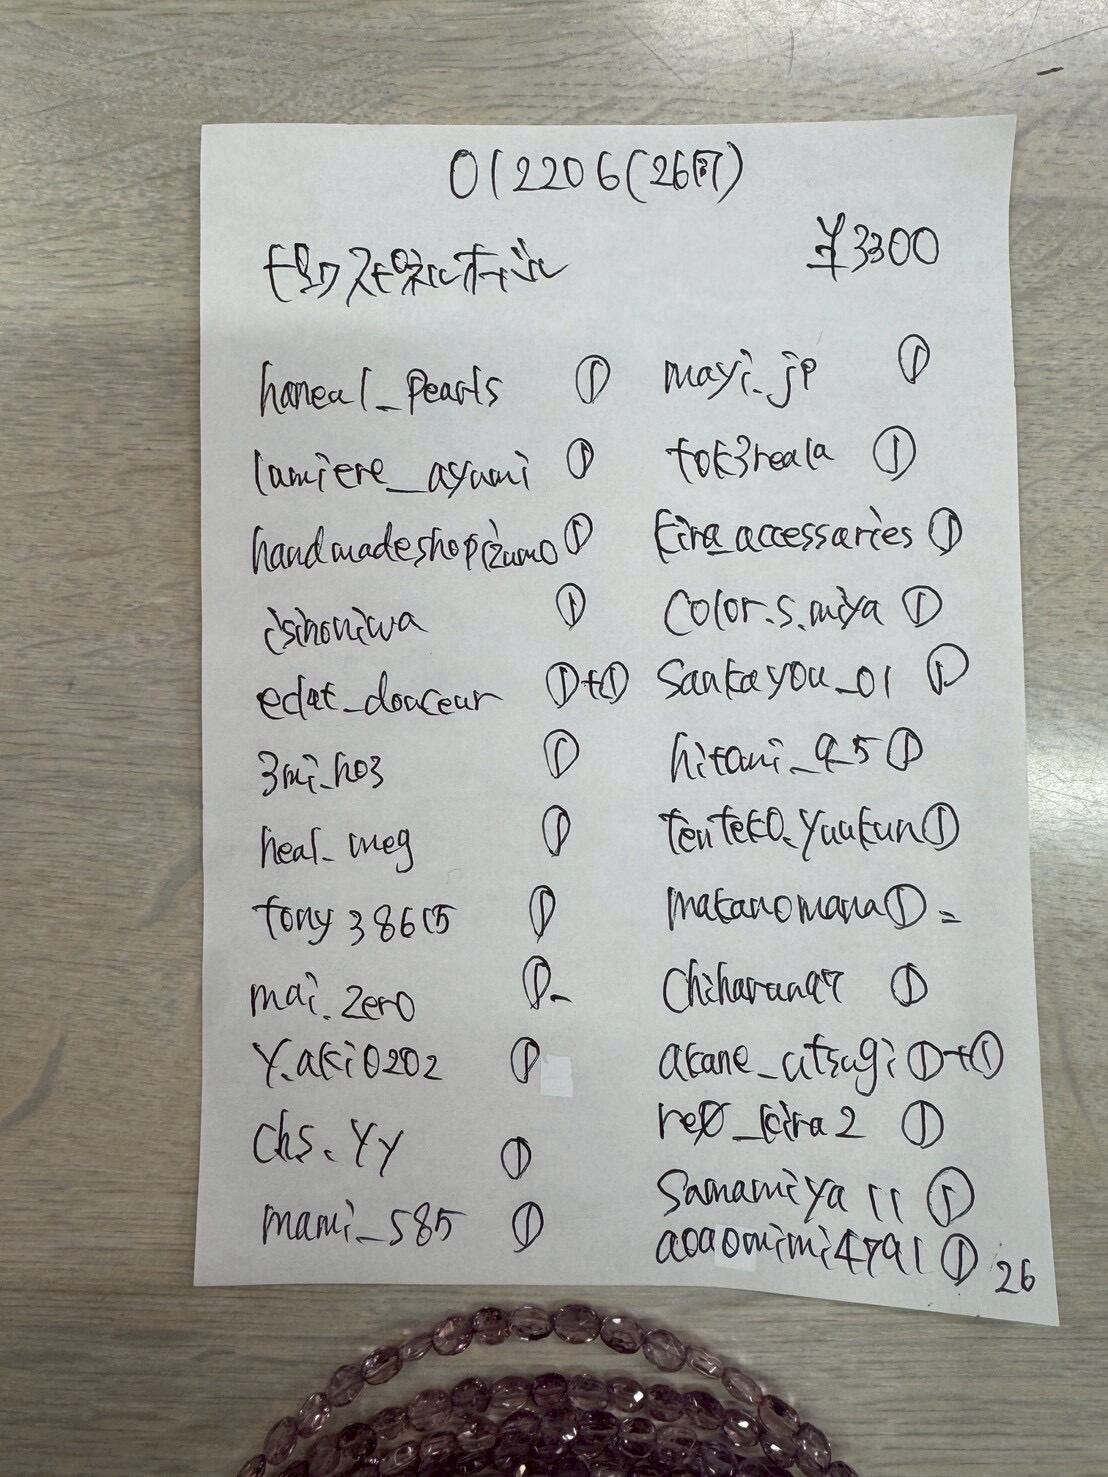 012206(26用)
ピンクスピネルオーバル ¥3300
honeal_pearls ①
lumiere_ayumi ①
handmadeshopizumo ①
isihoniwa ①
eclat_douceur ①+①
3mi_ho3 ①
heal_meg ①
tony38605 ①
mai.zero ①-
y.aki0202 ①
chs.yy ①
mami_585 ①
mayi_jp ①
tok3reala ①
kira_accessaries ①
color.s.miya ①
sankayou_01 ①
hitomi_9_5 ①
tenteko.yuukun ①
makanomana ① =
chiharun97 ①
akane_utsugi ①+①
re0_kira2 ①
samamiya11 ①
aoaomimi4791 ①
26